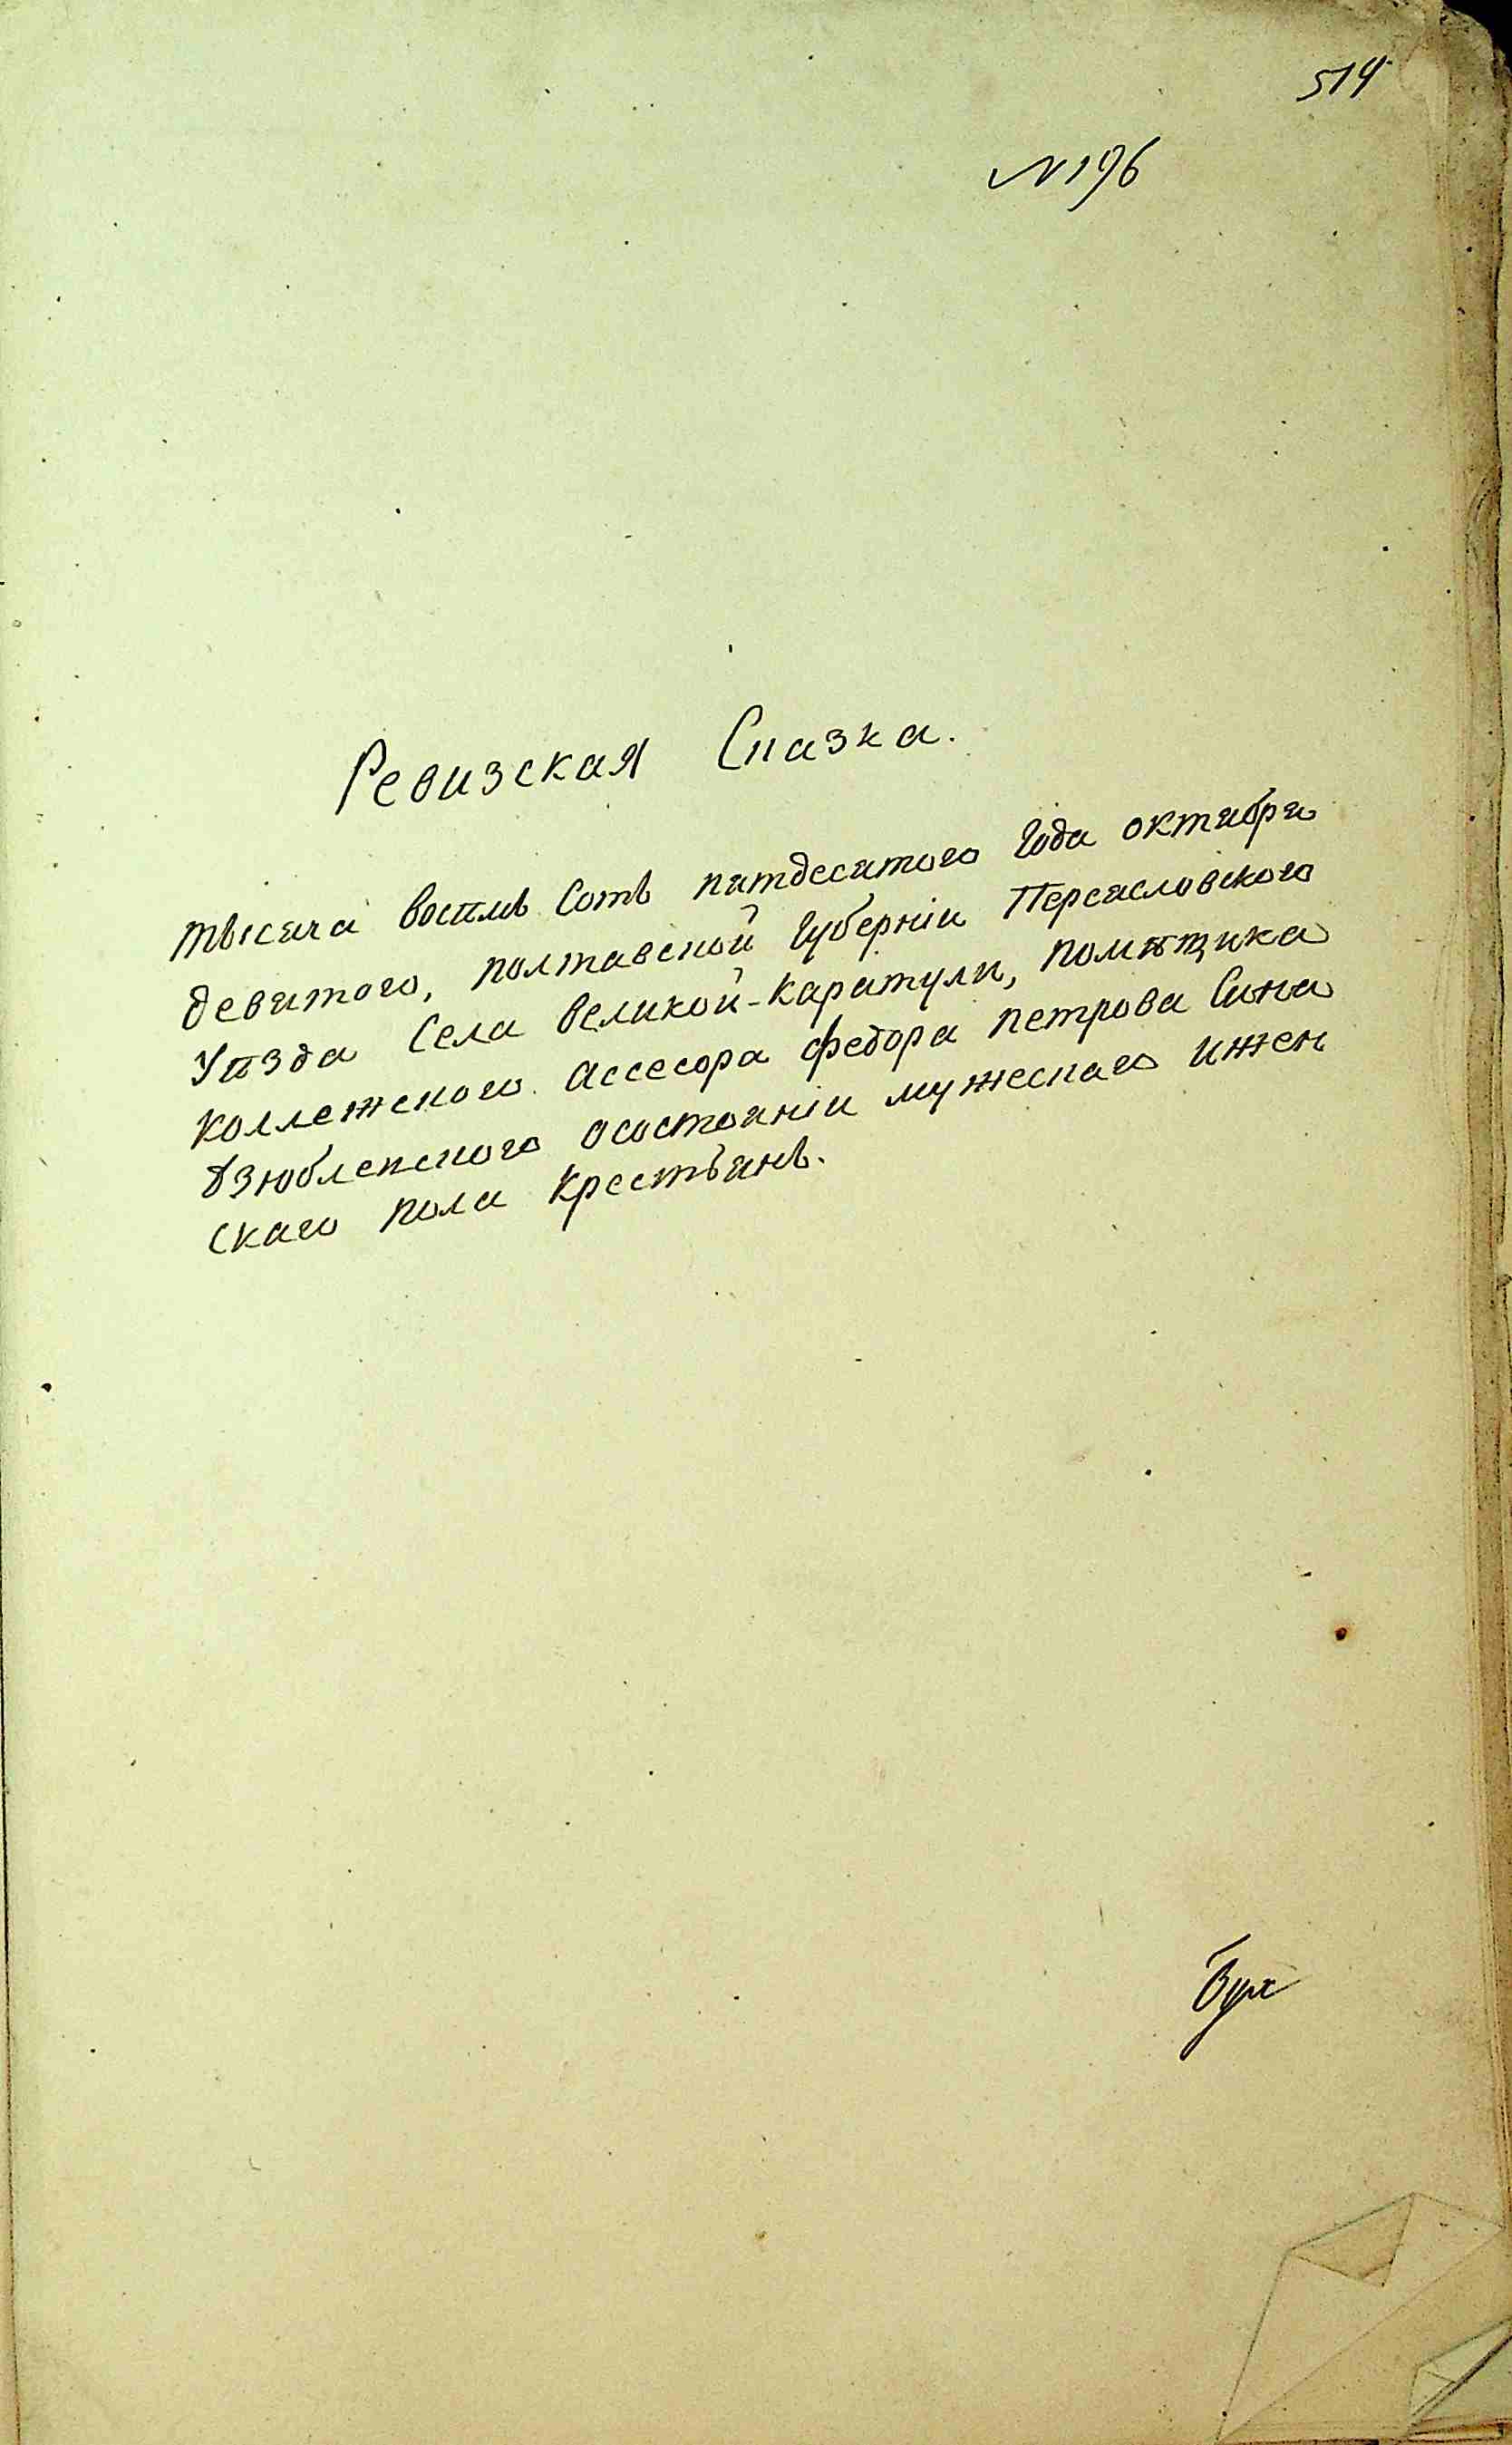 514
№196
Ревизская Сказка.
тысяча восемь сотъ пятдесятого Года октября
девятого, полтавской Губерніи Переясловского
Уѣзда Села великой-каратули, помѣщика
коллежского ассесора федора петрова Сина
Дзюблевского осостояніи мужескаго ижен
скаго пола Крестьянъ.